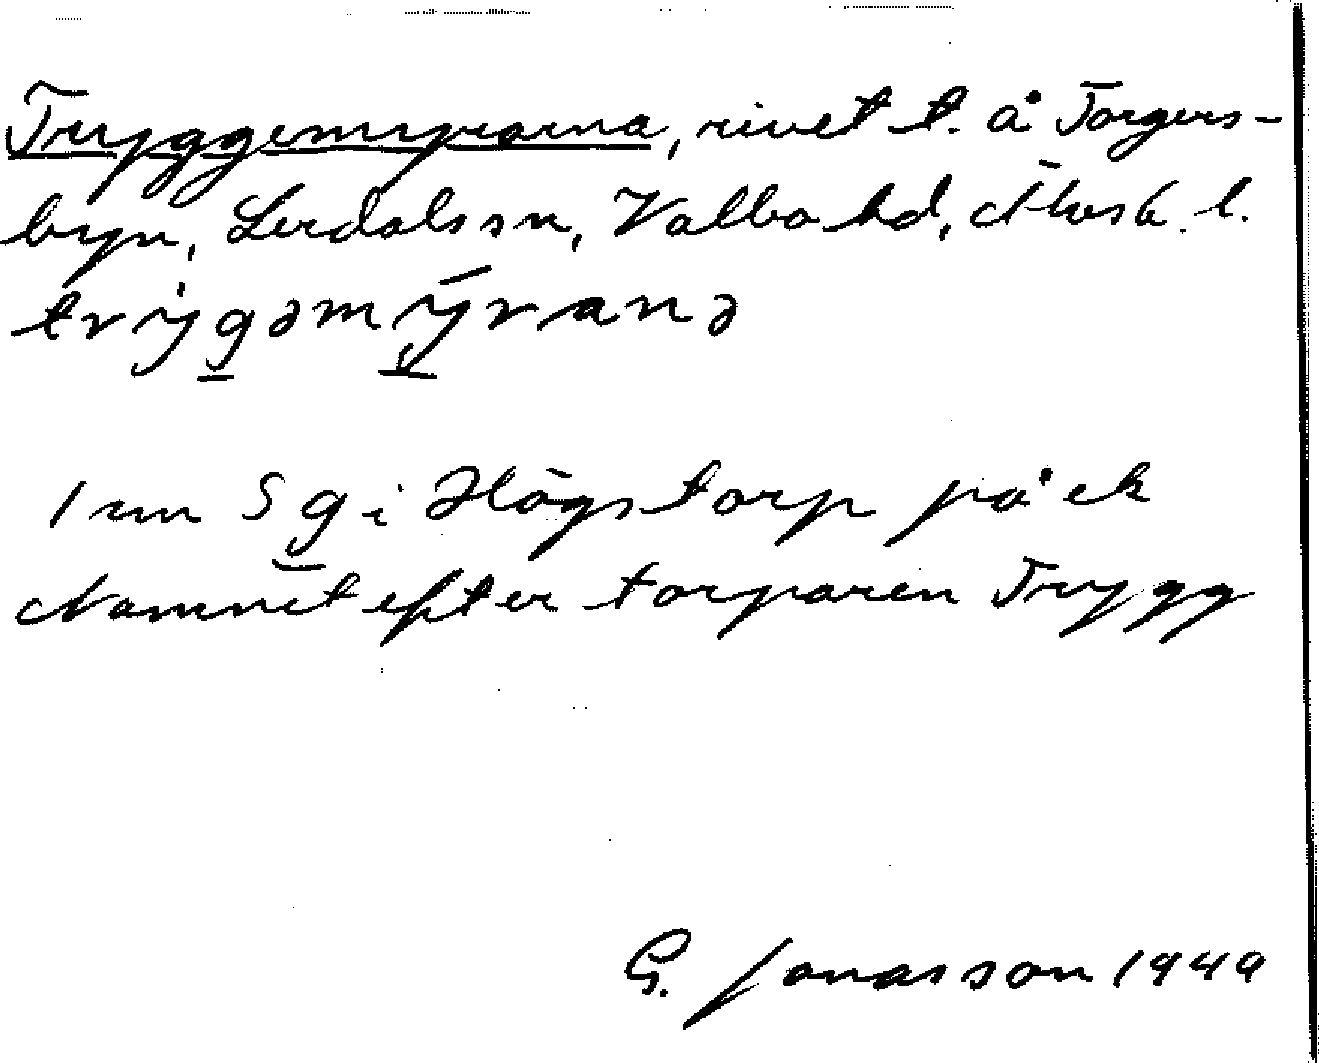 Tryggemyrarna, rivet t. å Torgers-
byn, Lerdals sn, Valbo hd, Älvsb. l.
trÿgəmȳrana
1 km S g i Högstorp på ek
Namnet efter torparen Trygg
G. Jonasson 1949